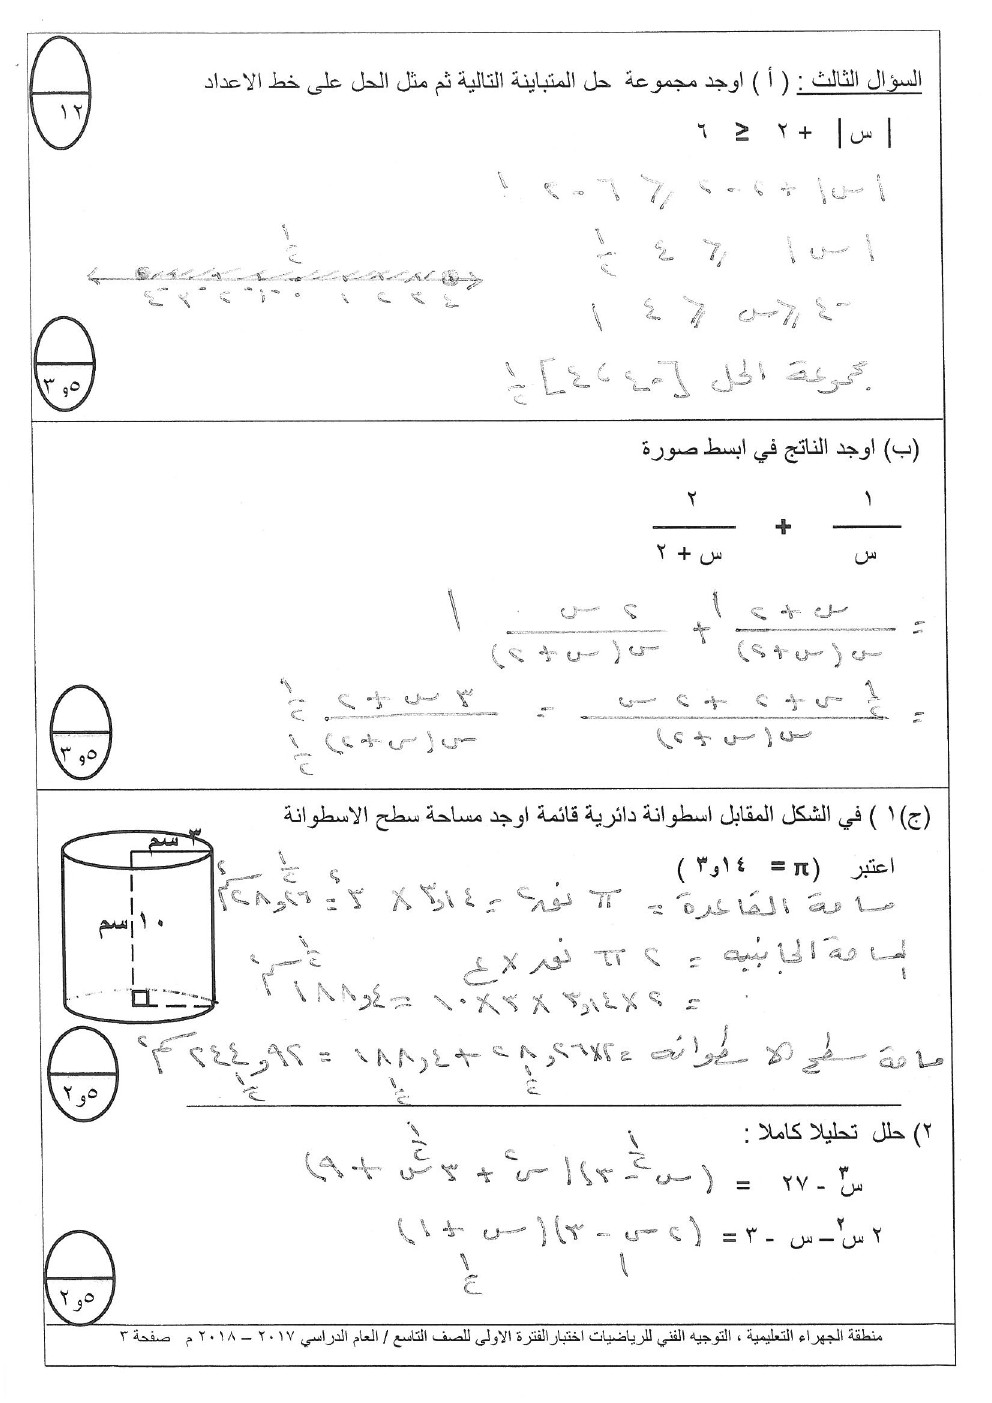 ١٢
السؤال الثالث : ( أ ) اوجد مجموعة حل المتباينة التالية ثم مثل الحل على خط الاعداد
| س | + ٢ ≤ ٦
| س | + ٢ - ٢ ≤ ٦ - ٢ ١
| س | ≤ ٤ ١/٢
-٤ ≤ س ≤ ٤ ١
١/٢
٤ ٣ ٢ ١ ٠ -١ -٢ -٣ -٤
مجموعة الحل [-٤ ، ٤] ١/٢
٥و٣
(ب) اوجد الناتج في ابسط صورة
١/س + ٢/(س + ٢)
= (س + ٢)/(س(س + ٢)) ١ + ٢ س/(س(س + ٢)) ١
= (س + ٢ + ٢ س)/(س(س + ٢)) ١/٢ = (٣ س + ٢)/(س(س + ٢)) ١/٢ ١/٢
٥و٣
(ج)١ ) في الشكل المقابل اسطوانة دائرية قائمة اوجد مساحة سطح الاسطوانة
اعتبر (π = ١٤و٣ )
٣ سم
١٠ سم
مساحة القاعدة = π نق² = ١٤و٣ × ٣² = ٢٦و٢٨ سم² ١/٢
المساحة الجانبيه = ٢ π نق × ع
= ٢ × ١٤و٣ × ٣ × ١٠ = ٤و١٨٨ سم² ١/٢
مساحة سطح الاسطوانه = ٢×٢٦و٢٨ + ٤و١٨٨ = ٩٢و٢٤٤ سم²
١/٢ ١/٢ ١/٢
٥و٢
٢) حلل تحليلا كاملا :
س³ - ٢٧ = (س - ٣)(س² + ٣ س + ٩) ١/٢ ١/٢
٢ س² – س - ٣ = (٢ س - ٣)(س + ١) ١ ١/٢
٥و٢
منطقة الجهراء التعليمية ، التوجيه الفني للرياضيات اختبار الفترة الاولى للصف التاسع / العام الدراسي ٢٠١٧ – ٢٠١٨ م صفحة ٣